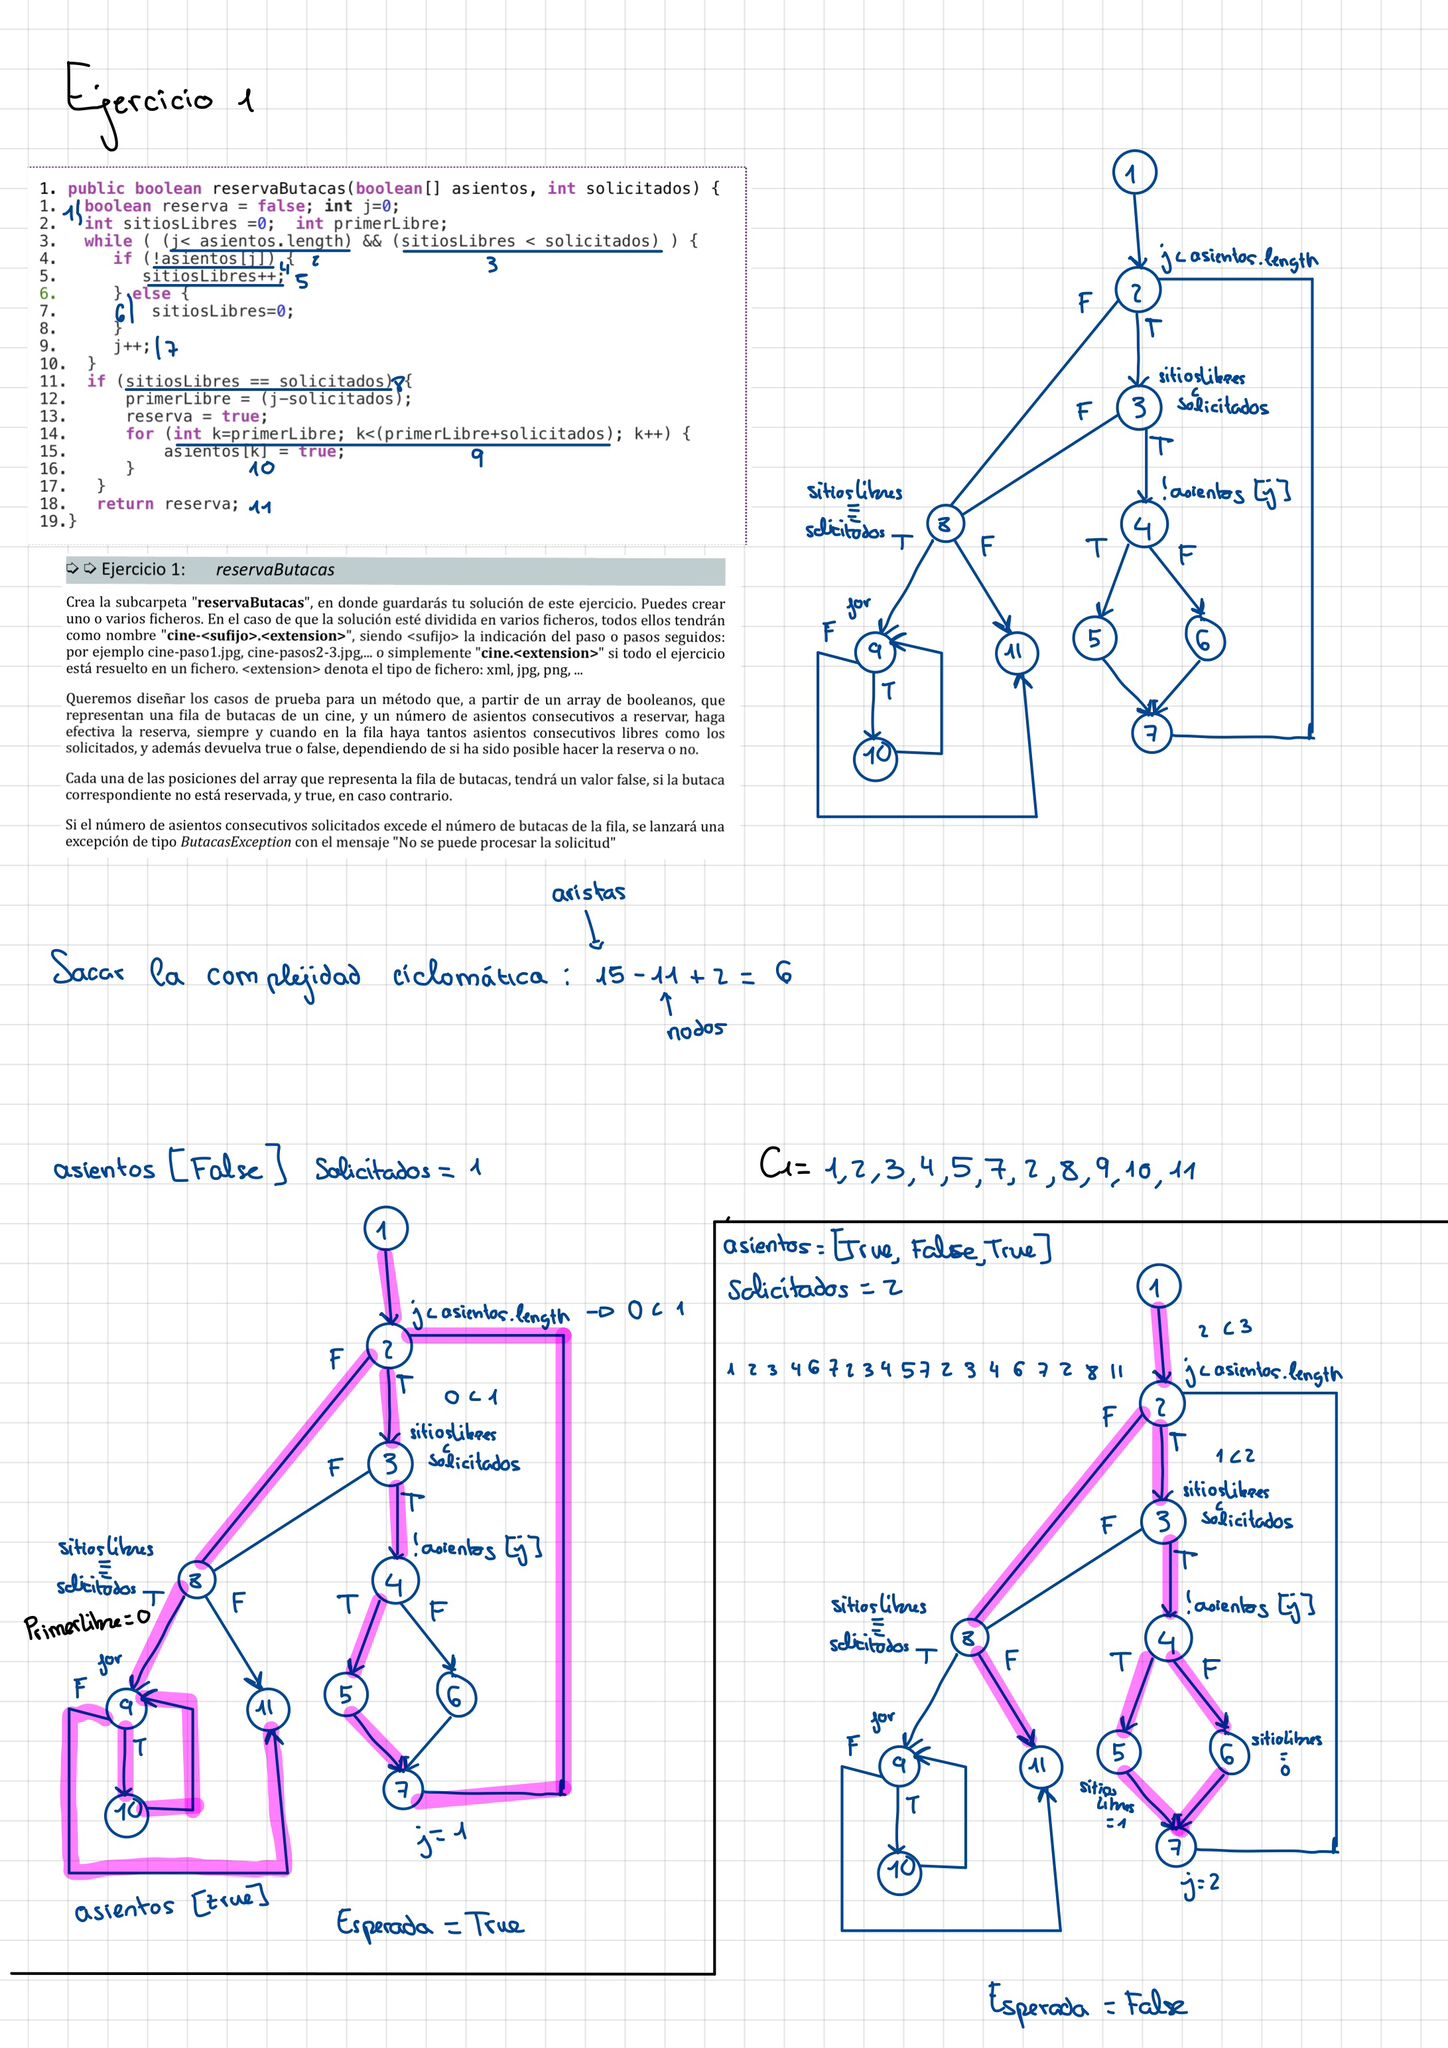 Ejercicio 1
1. public boolean reservaButacas(boolean[] asientos, int solicitados) {
1. boolean reserva = false; int j=0;
1
2. int sitiosLibres =0; int primerLibre;
3. while ( (j< asientos.length) && (sitiosLibres < solicitados) ) {
4. if (!asientos[j]) {
2
3
4
5. sitiosLibres++;
5
6. } else {
6
7. sitiosLibres=0;
8. }
9. j++;
7
10. }
11. if (sitiosLibres == solicitados) {
8
12. primerLibre = (j-solicitados);
13. reserva = true;
14. for (int k=primerLibre; k<(primerLibre+solicitados); k++) {
15. asientos[k] = true;
9
16. }
10
17. }
18. return reserva;
11
19.}
1
j < asientos.length
2
F
T
sitioslibres
<
solicitados
3
F
T
!asientos [j]
4
T
F
sitioslibres
==
solicitados
8
T
F
for
F
9
11
5
6
T
10
7
➩ ➩ Ejercicio 1: reservaButacas
Crea la subcarpeta "reservaButacas", en donde guardarás tu solución de este ejercicio. Puedes crear
uno o varios ficheros. En el caso de que la solución esté dividida en varios ficheros, todos ellos tendrán
como nombre "cine-<sufijo>.<extension>", siendo <sufijo> la indicación del paso o pasos seguidos:
por ejemplo cine-paso1.jpg, cine-pasos2-3.jpg,... o simplemente "cine.<extension>" si todo el ejercicio
está resuelto en un fichero. <extension> denota el tipo de fichero: xml, jpg, png, ...
Queremos diseñar los casos de prueba para un método que, a partir de un array de booleanos, que
representan una fila de butacas de un cine, y un número de asientos consecutivos a reservar, haga
efectiva la reserva, siempre y cuando en la fila haya tantos asientos consecutivos libres como los
solicitados, y además devuelva true o false, dependiendo de si ha sido posible hacer la reserva o no.
Cada una de las posiciones del array que representa la fila de butacas, tendrá un valor false, si la butaca
correspondiente no está reservada, y true, en caso contrario.
Si el número de asientos consecutivos solicitados excede el número de butacas de la fila, se lanzará una
excepción de tipo ButacasException con el mensaje "No se puede procesar la solicitud"
aristas
Sacar la complejidad ciclomática : 15 - 11 + 2 = 6
nodos
asientos [False] Solicitados = 1
1
j < asientos.length → 0 < 1
2
F
T
0 < 1
sitioslibres
<
solicitados
3
F
T
!asientos [j]
4
T
F
sitioslibres
==
solicitados
8
T
F
Primerlibre=0
for
F
9
11
5
6
T
10
7
j=1
asientos [true]
Esperada = True
C1= 1,2,3,4,5,7,2,8,9,10,11
asientos = [True, False, True]
Solicitados = 2
1
2 < 3
1 2 3 4 6 7 2 3 4 5 7 2 3 4 6 7 2 8 11
j < asientos.length
2
F
T
1 < 2
sitioslibres
<
solicitados
3
F
T
!asientos [j]
4
T
F
sitioslibres
==
solicitados
8
T
F
for
F
9
11
5
6
sitiolibres
=
0
T
sitios
libres
=1
10
7
j=2
Esperada = False